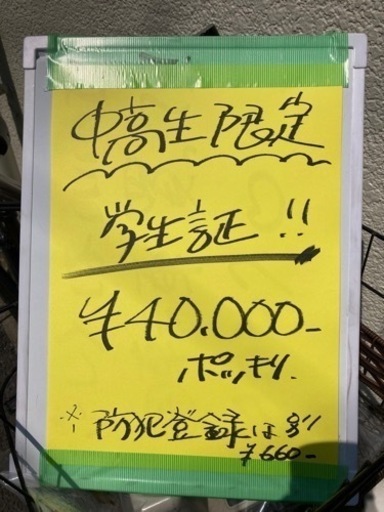 中高生限定
学生証!!
¥40,000-
ポッキリ.
※防犯登録は別
¥660-